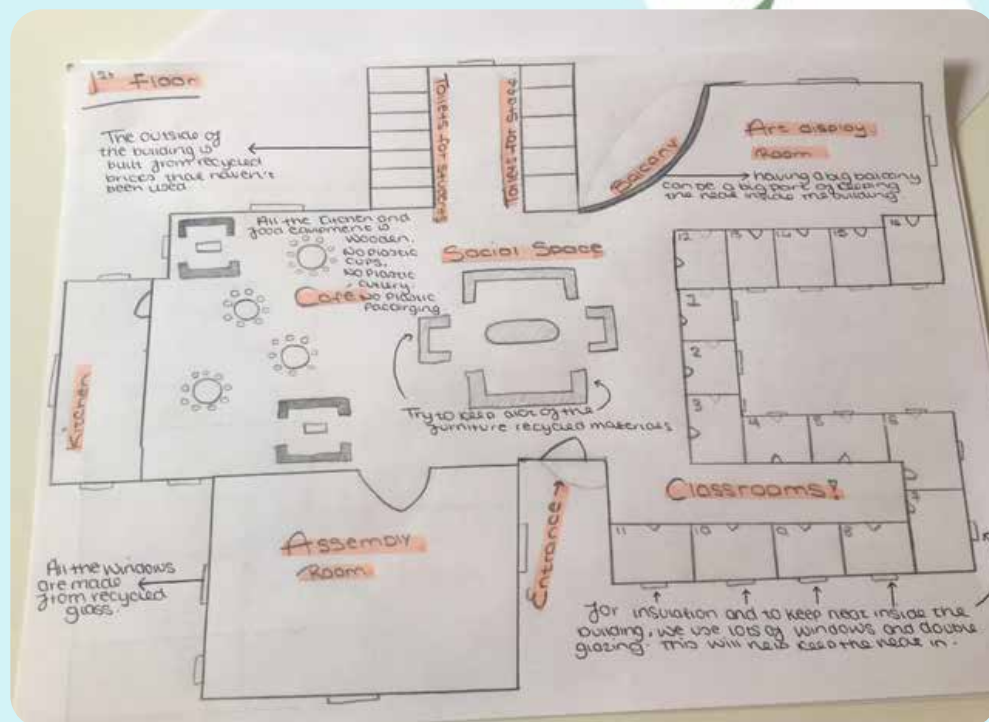 1st Floor
The outside of
the building is
built from recycled
brices that haven't
been used
Toilets for students
Toilets for staff
Balcony
Art display
Room
having a big balcony
can be a big part of keeping
the heat inside the building.
All the kitchen and
food equipment is
wooden.
No plastic
cups,
No plastic
cutlery
No plastic
packaging
Cafe
Social Space
Kitchen
Try to keep alot of the
furniture recycled materials
12
13
14
15
16
1
2
3
4
5
6
Classrooms!
11
10
9
8
Entrance
Assembly
Room
All the windows
are made
from recycled
glass.
for insulation and to keep heat inside the
building, we use lots of windows and double
glazing. This will help keep the heat in.